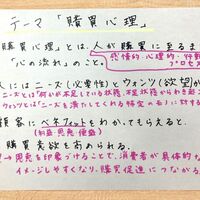 テーマ「購買心理」
「購買心理」とは、人が購買に至るま
「心の流れ」のこと。
感情的・心理的・行動
プロセス
人にはニーズ(必要性)とウォンツ(欲望)が
ニーズとは「何かが不足している状態、不足状態からわき起こ
ウォンツとは「ニーズを満たしてくれる特定のもの」に対する
顧客にベネフィットをわかってもらえると、
(利益・恩恵・便益)
購買意欲を高められる。
→恩恵を印象づけることで、消費者が具体的な
イメージしやすくなり、購買促進につながる